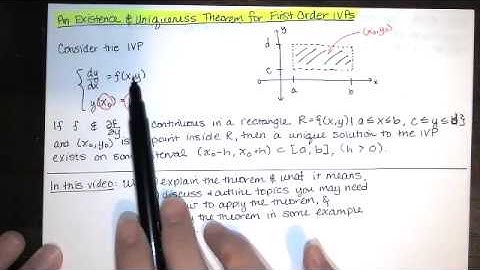 An Existence & Uniqueness Theorem for First Order IVPs
Consider the IVP
dy/dx = f(x,y)
y(x₀) =
y
d
c
a
b
x
(x₀,y₀)
If f & ∂f/∂y continuous in a rectangle R={(x,y)| a≤x≤b, c≤y≤d}
and (x₀,y₀) is point inside R, then a unique solution to the IVP
exists on som interval (x₀-h, x₀+h) ⊂ [a,b], (h>0).
In this video: explain the theorem & what it means,
discuss & outline topics you may need
to apply the theorem, &
the theorem in some example